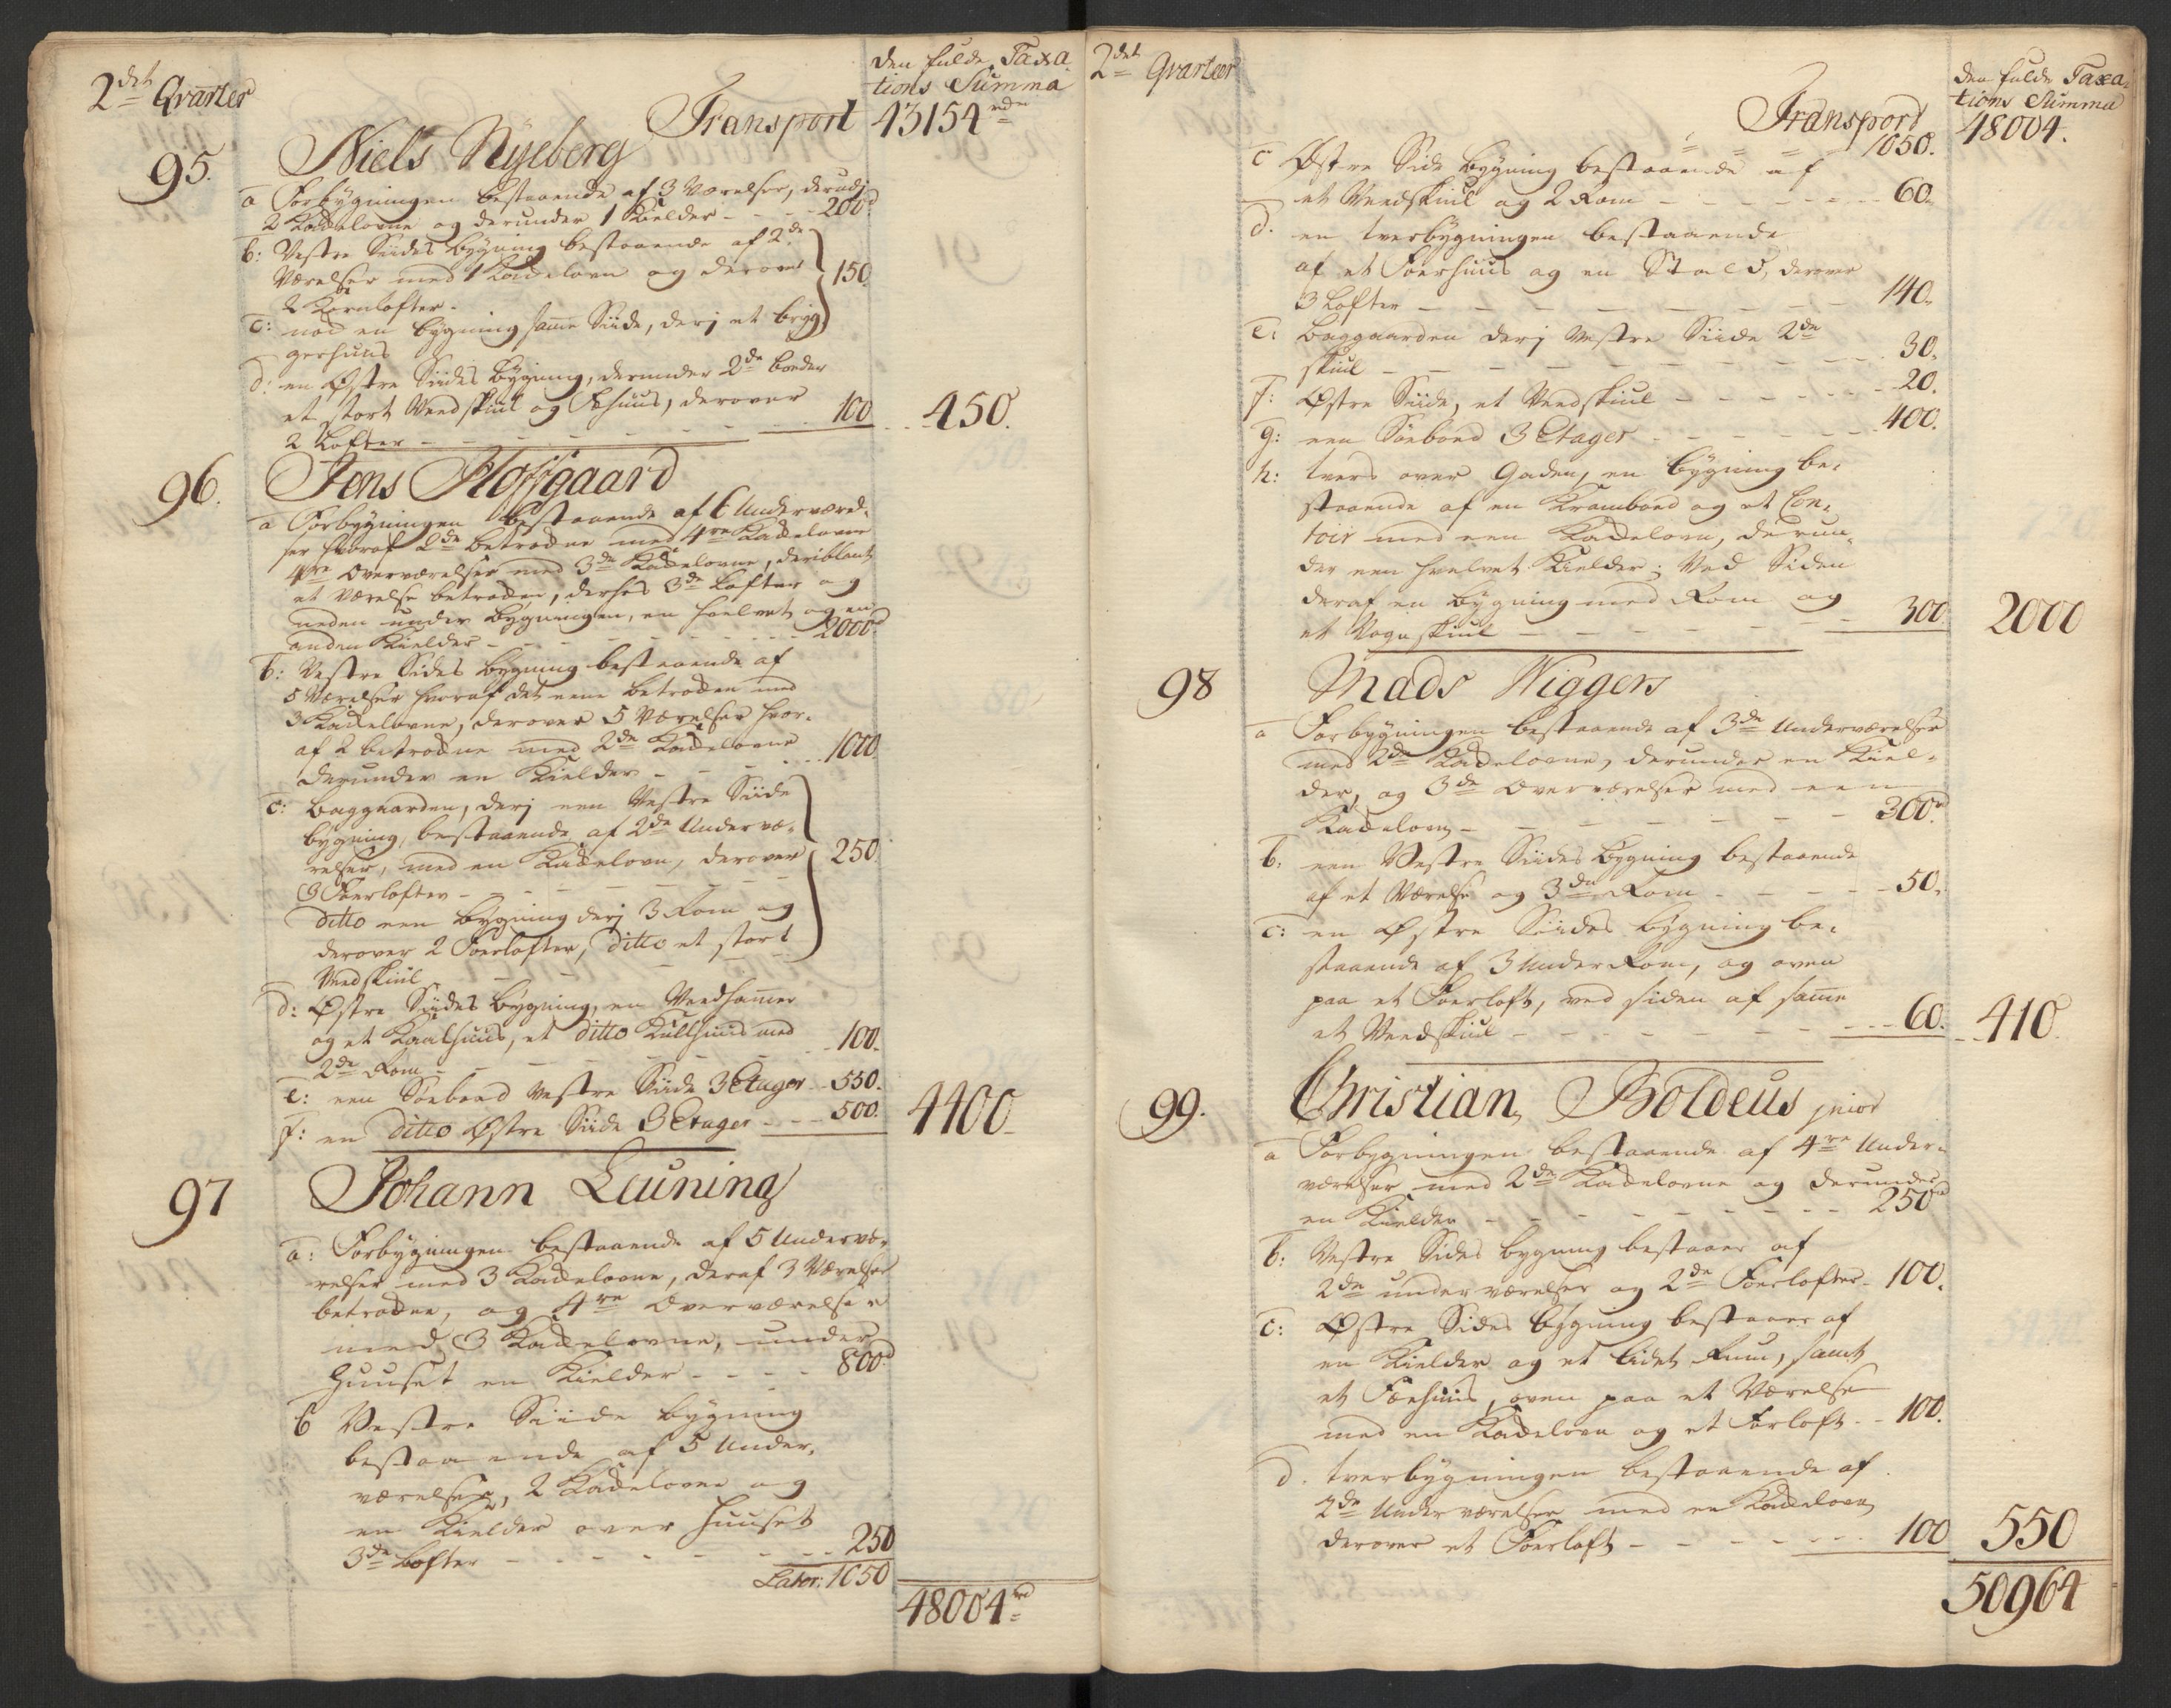 2det Qvarter
den fulde Taxa
tions Summa
Transport 43154rd
95. Niels Nyeberg
a Forbygningen bestaaende af 3 Værelser, derudj
2 Kakelovne og derunder 1 Kielder - - - 200d
b: Vestre Siides bygning bestaaende af 2de
Værelser med 1 Kakelovn og derover 150
2 Kornlofter.
c: nock en bygning samme Siide, derj et bryg
gerhuus
d: en Østre Siides Bygning, derunder 2de boeder
et stort Veedskiul og Fæhuus, derover
2 Lofter - - - - 100 450.
96. Jens Hoffgaard
a Forbygningen bestaaende af 6 Underværel-
ser hvoraf 2de betrækne med 4re Kakelovne
4re Overværelser med 3de Kakelovne, deriblant
et Værelse betrækken, derhos 3de Lofter og
neden under bygningen, en hvelvet og en
anden Kielder - - - 2000d
b: Vestre Sides bygning bestaaende af
5 Værelser hvoraf det eene betrækken med
3 Kakelovne, derover 5 Værelser hvor-
af 2 betrækne med 2de Kakelovne
derunder en Kielder - - - 1000
c: baggaarden, derj een Vestre Siide
bygning, bestaaende af 2de Undervæ-
relser, med en Kakelovn, derover 250.
3 Foerlofter - - -
ditto een bygning derj 3 Rom og
derover 2 Foerlofter, ditto et stort
Veedskiul
d: Østre Siides bygning, en Veedhammer
og et Kaalhuus, et ditto Kullhuus med
2de Rom - - - 100.
e: een Søeboed Vestre Siide 3 Etager - 550.
f: en ditto Østre Siide 3 Etager - - - 500. 4400
97 Johann Leuning
a: Forbygningen bestaaende af 5 Undervæ-
relser med 3 Kakelovne, deraf 3 Værelser
betrækne, og 4re Overværelser
med 3 Kakelovne, under
Huuset en Kielder - - - - 800d
b Vestre Siide bygning
bestaaende af 5 Under-
værelser, 2 Kakelovne og
en Kielder over Huuset
3de Lofter - - - - 250
Later: 1050
48004rd
2det Qvarteer
den fulde Taxa-
tions Summa
Transport 1050. 48004.
c Østre Side bygning bestaaende af
et Veedskiul og 2 Rom - - - 60.
d. en tverbygningen bestaaende
af et Foerhuus og en Stald, derover
3 Lofter - - - 140.
e: baggaarden derj Vestre Siide 2de
skiul - - - 30.
f: Østre Siide, et Veedskiul - - - 20.
g: een Søeboed 3 Etager - - - 400.
h: tvers over Gaden, en bygning be-
staaende af en Kramboed og et Con-
toir med een Kakelovn, derun-
der een hvelvet Kielder; Ved Siden
deraf en bygning med Rom og
et Vognskiul - - - 300 2000
98 Mads Wiggers
a Forbygningen bestaaende af 3de Underværelser
med 2de Kakelovne, derunder en Kiel-
der, og 3de Overværelser med een
Kakelovn - - - 300d
b: een Vestre Siides bygning bestaaende
af et Værelse og 3de Rom - - - 50.
c: en Østre Siides bygning be-
staaende af 3 Under Rom, og oven
paa et Foerloft, ved siden af samme
et Veedskiul - - - 60. 410.
99. Christian Boldeus
a Forbygningen bestaaende af 4re Under-
værelser med 2de Kakelovne og derunder
en Kielder - - - 250d
b: Vestre Sides bygning bestaaer af
2de underværelser og 2de Foerlofter - 100.
c: Østre Sides bygning bestaaer af
en Kielder og et lidet Rum, samt
et Fæehuus, oven paa et Værelse
med en Kakelovn og et Forloft - 100.
d. tverbygningen bestaaende af
2de Underværelser med en Kakelovn
derover et Foerloft - - - 100 550
50964